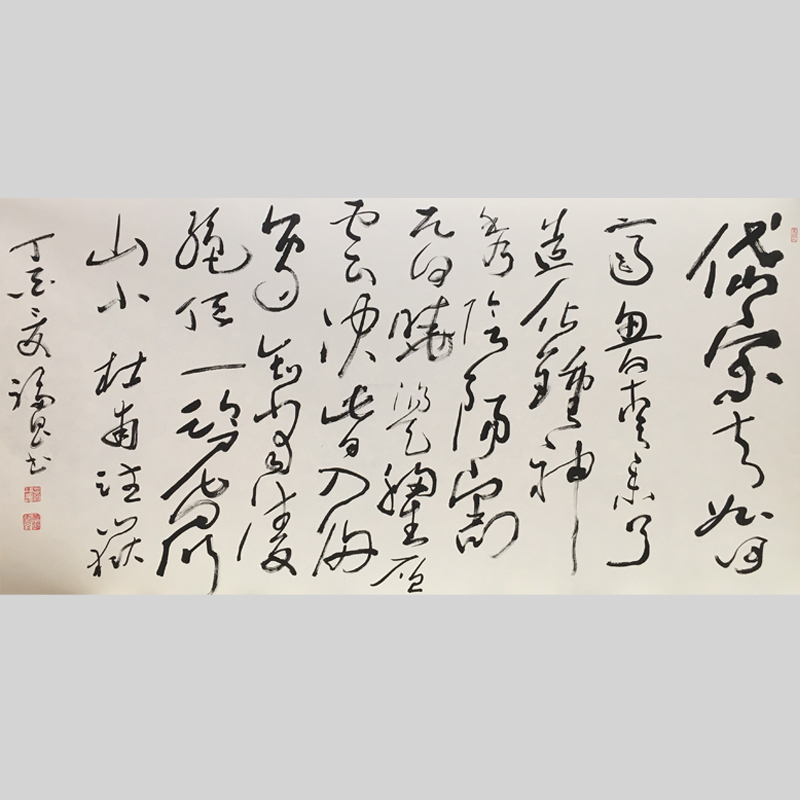 岱宗夫如何
齊魯青未了
造化鍾神
秀陰陽割
昏曉盪胸生層
雲決眥入歸
鳥會當凌
絕頂一覽眾
山小 杜甫望嶽
丁酉夏書